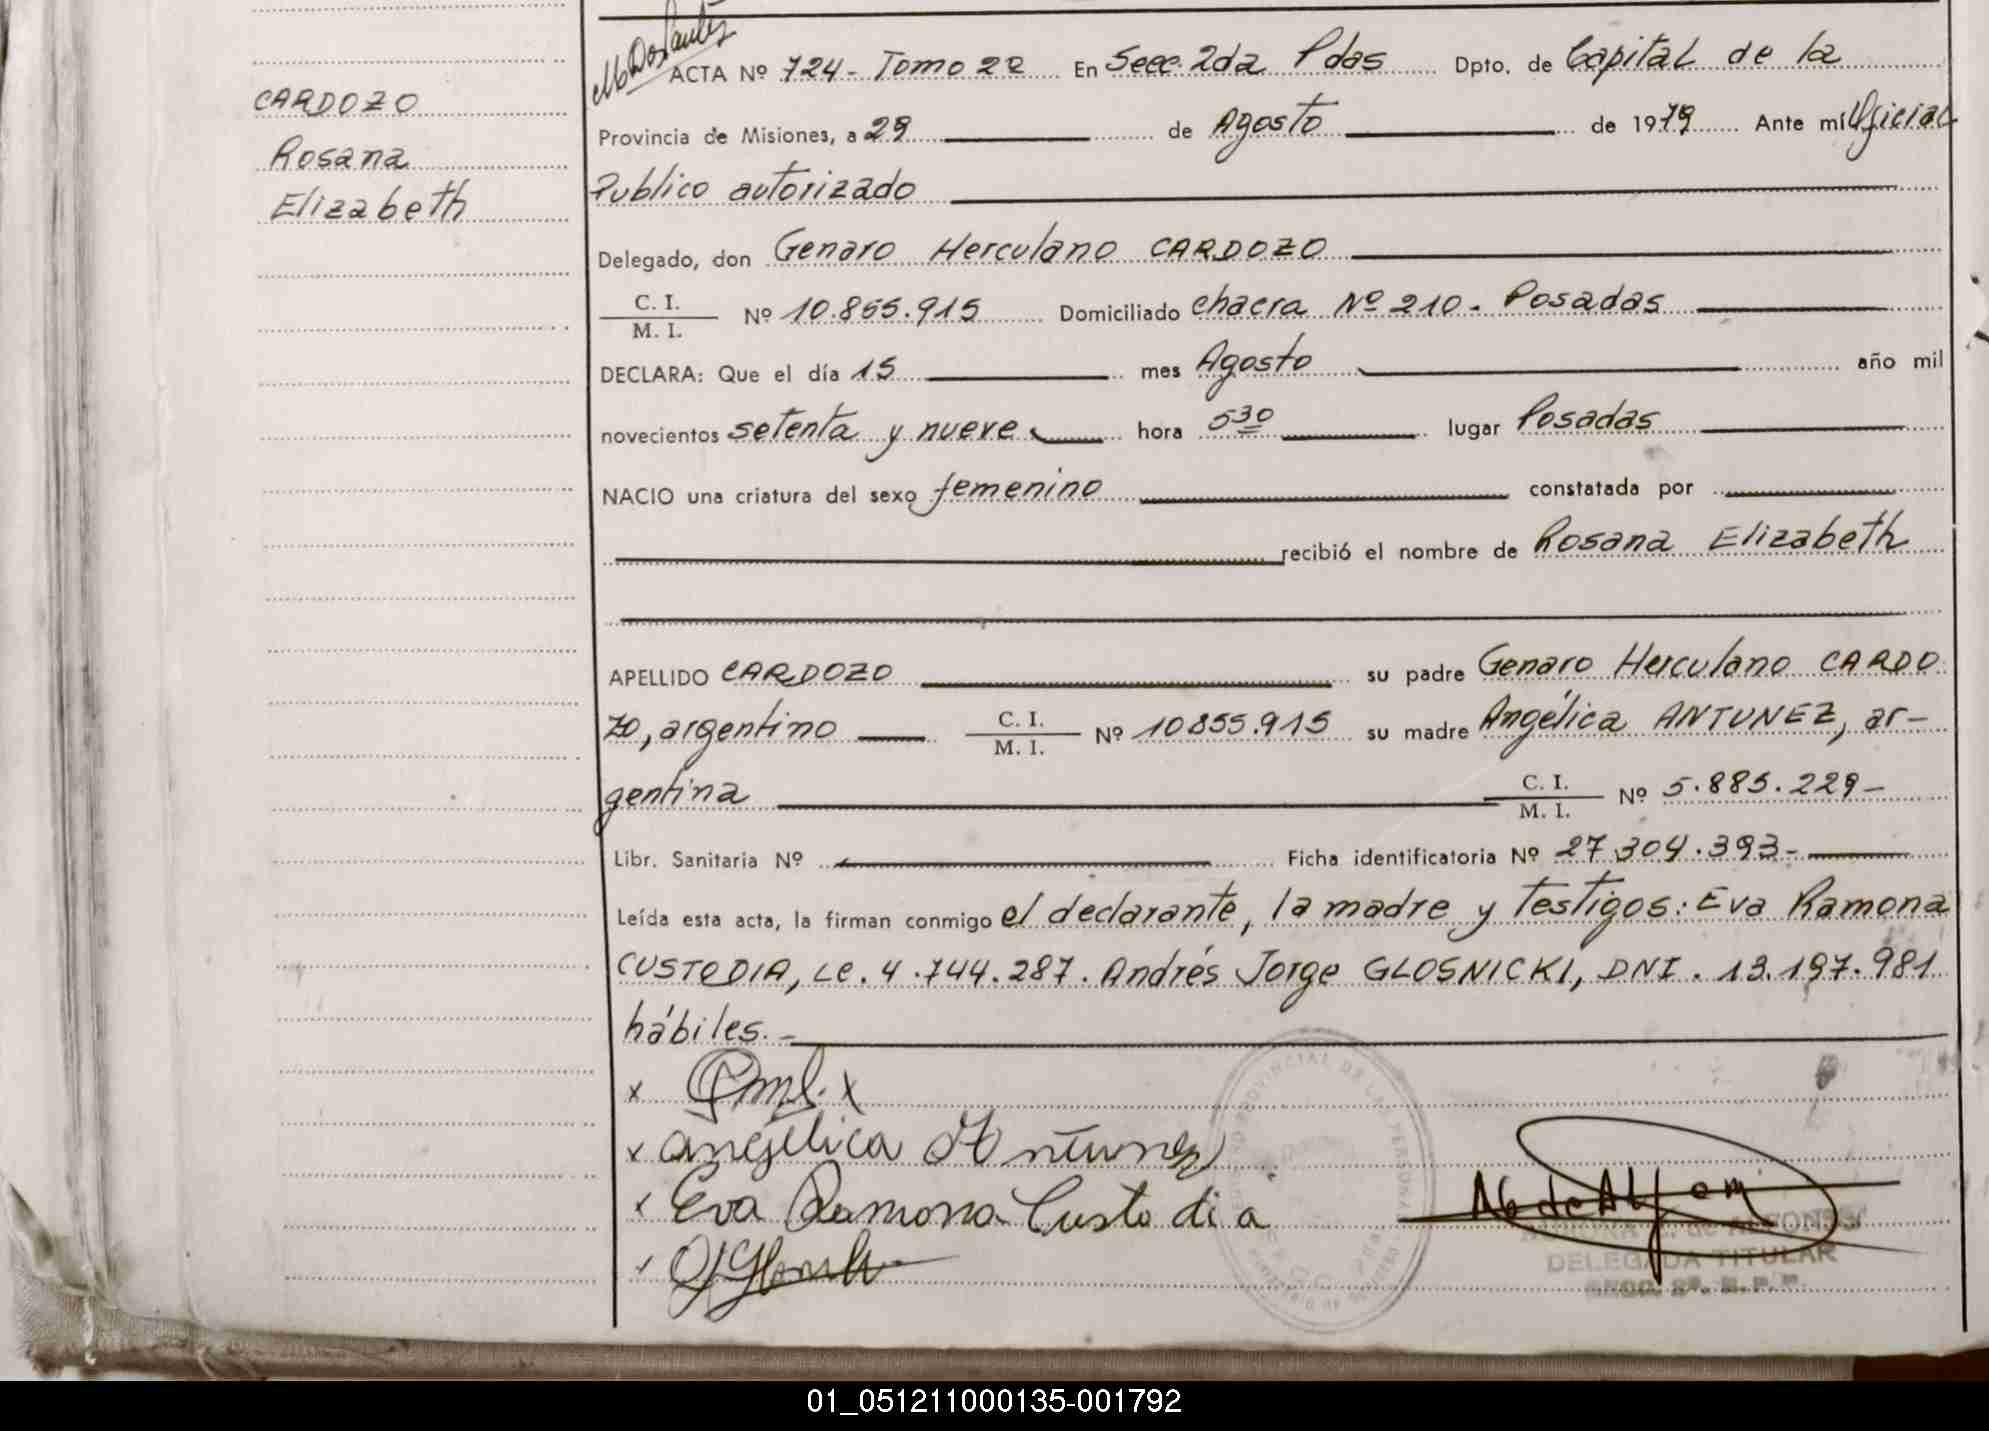 M Dos Santos
ACTA Nº 724- Tomo 2º En Secc. 2da Pdas Dpto. de Capital de la
CARDOZO
Rosana
Elizabeth
Provincia de Misiones, a 29 de Agosto de 1979 Ante mí Oficial
Publico autorizado
Delegado, don Genaro Herculano CARDOZO
C. I.
M. I. Nº 10.855.915 Domiciliado chacra Nº 210. Posadas
DECLARA: Que el día 15 mes Agosto año mil
novecientos setenta y nueve hora 5 30 lugar Posadas
NACIO una criatura del sexo femenino constatada por
recibió el nombre de Rosana Elizabeth
APELLIDO CARDOZO su padre Genaro Herculano CARDO
ZO, argentino C. I. M. I. Nº 10855.915 su madre Angélica ANTUNEZ, ar-
gentina C. I. M. I. Nº 5.885.229-
Libr. Sanitaria Nº Ficha identificatoria Nº 27.304.393-
Leída esta acta, la firman conmigo el declarante, la madre y testigos: Eva Ramona
CUSTODIA, LC. 4.744.287. Andrés Jorge GLOSNICKI, DNI. 13.197.981
hábiles.-
Angélica Antunez
Eva Ramona Custodia
PROVINCIAL DE LAS PERSONAS
de ALFONSO
DELEGADA TITULAR
01_051211000135-001792